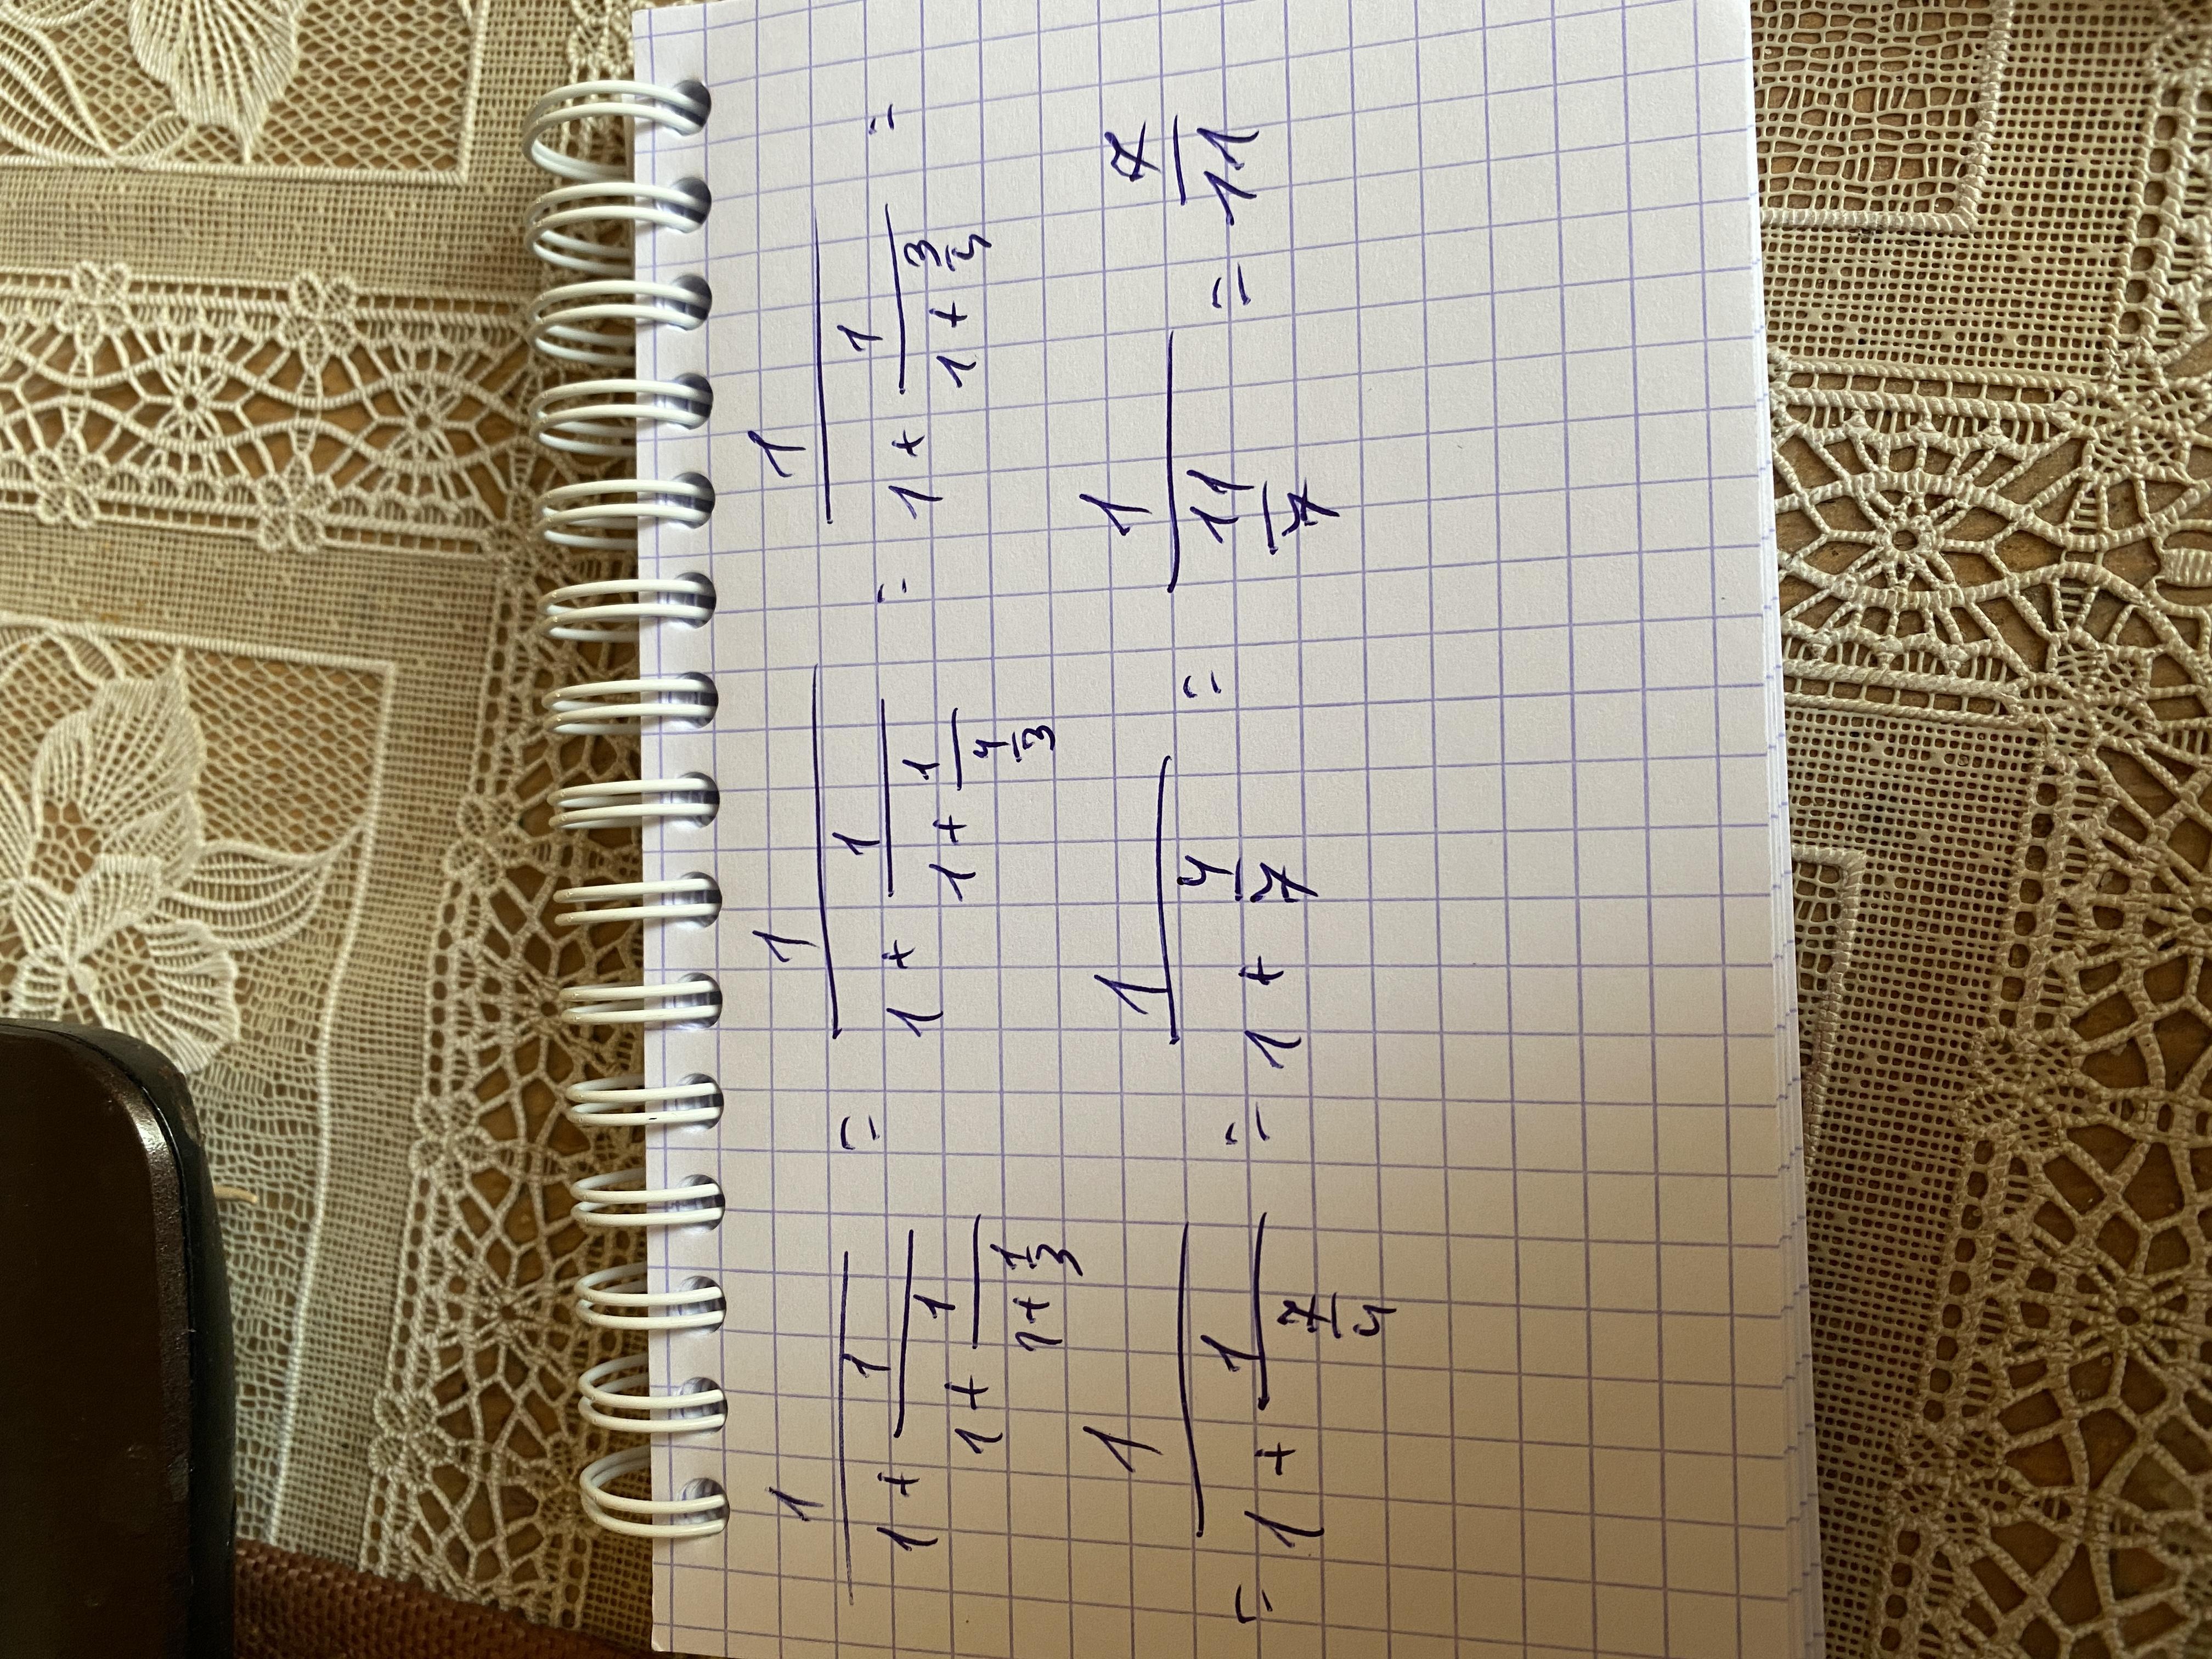 1/(1+1/(1+1/(1+1/3))) = 1/(1+1/(1+1/(4/3))) = 1/(1+1/(1+3/4)) =
= 1/(1+1/(7/4)) = 1/(1+4/7) = 1/(11/7) = 7/11